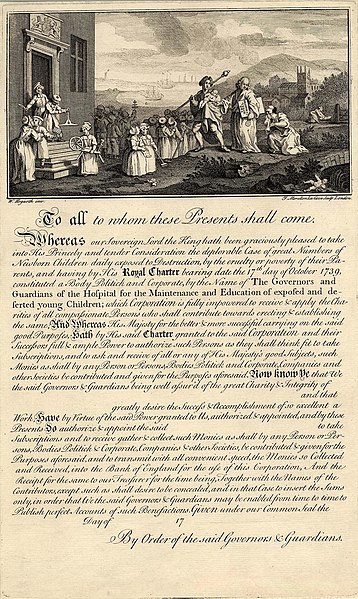 W. Hogarth inv.
F. Morellon la Cave Sculp. London.
To all to whom these Presents shall come.
Whereas our Sovereign Lord the King hath been graciously pleased to take
into His Princely and tender Consideration the deplorable Case of great Numbers of
Newborn Children daily exposed to Destruction, by the cruelty or poverty of their Pa-
rents, and having by His Royal Charter bearing date the 17th day of October 1739.
constituted a Body Politick and Corporate, by the Name of The Governors and
Guardians of the Hospital for the Maintenance and Education of exposed and de-
serted young Children; which Corporation is fully impowered to receive & apply the Cha-
rities of all compassionate Persons who shall contribute towards erecting & establishing
the same, And Whereas His Majesty for the better & more successful carrying on the said
good Purposes, Hath by His said Charter granted to the said Corporation and their
Successors full & ample Power to authorize such Persons as they shall think fit to take
Subscriptions, and to ask and receive of all or any of His Majesty's good Subjects, such
Monies as shall by any Person or Persons, Bodies Politick and Corporate, Companies and
other Societies be contributed & given for the Purposes aforesaid, Now know Ye that We
the said Governors & Guardians being well assur'd of the great Charity & Integrity of
and that
greatly desire the Success & Accomplishment of so excellent a
Work, Have by Virtue of the said Power granted to Us, authorized & appointed, and by these
Presents Do authorize & appoint the said to take
Subscriptions and to receive gather & collect such Monies as shall by any Person or Per-
sons, Bodies Politick & Corporate, Companies & other Societies, be contributed & given for the
Purposes aforesaid, and to transmit with all convenient speed, the Monies so Collected
and Received, into the Bank of England for the use of this Corporation, And the
Receipt for the same to our Treasurer for the time being, Together with the Names of the
Contributors, except such as shall desire to be concealed, and in that Case to insert the Sums
only, in order that We the said Governors & Guardians may be enabled from time to time to
Publish perfect Accounts of such Benefactions. Given under our Common Seal the
Day of 17
By Order of the said Governors & Guardians.